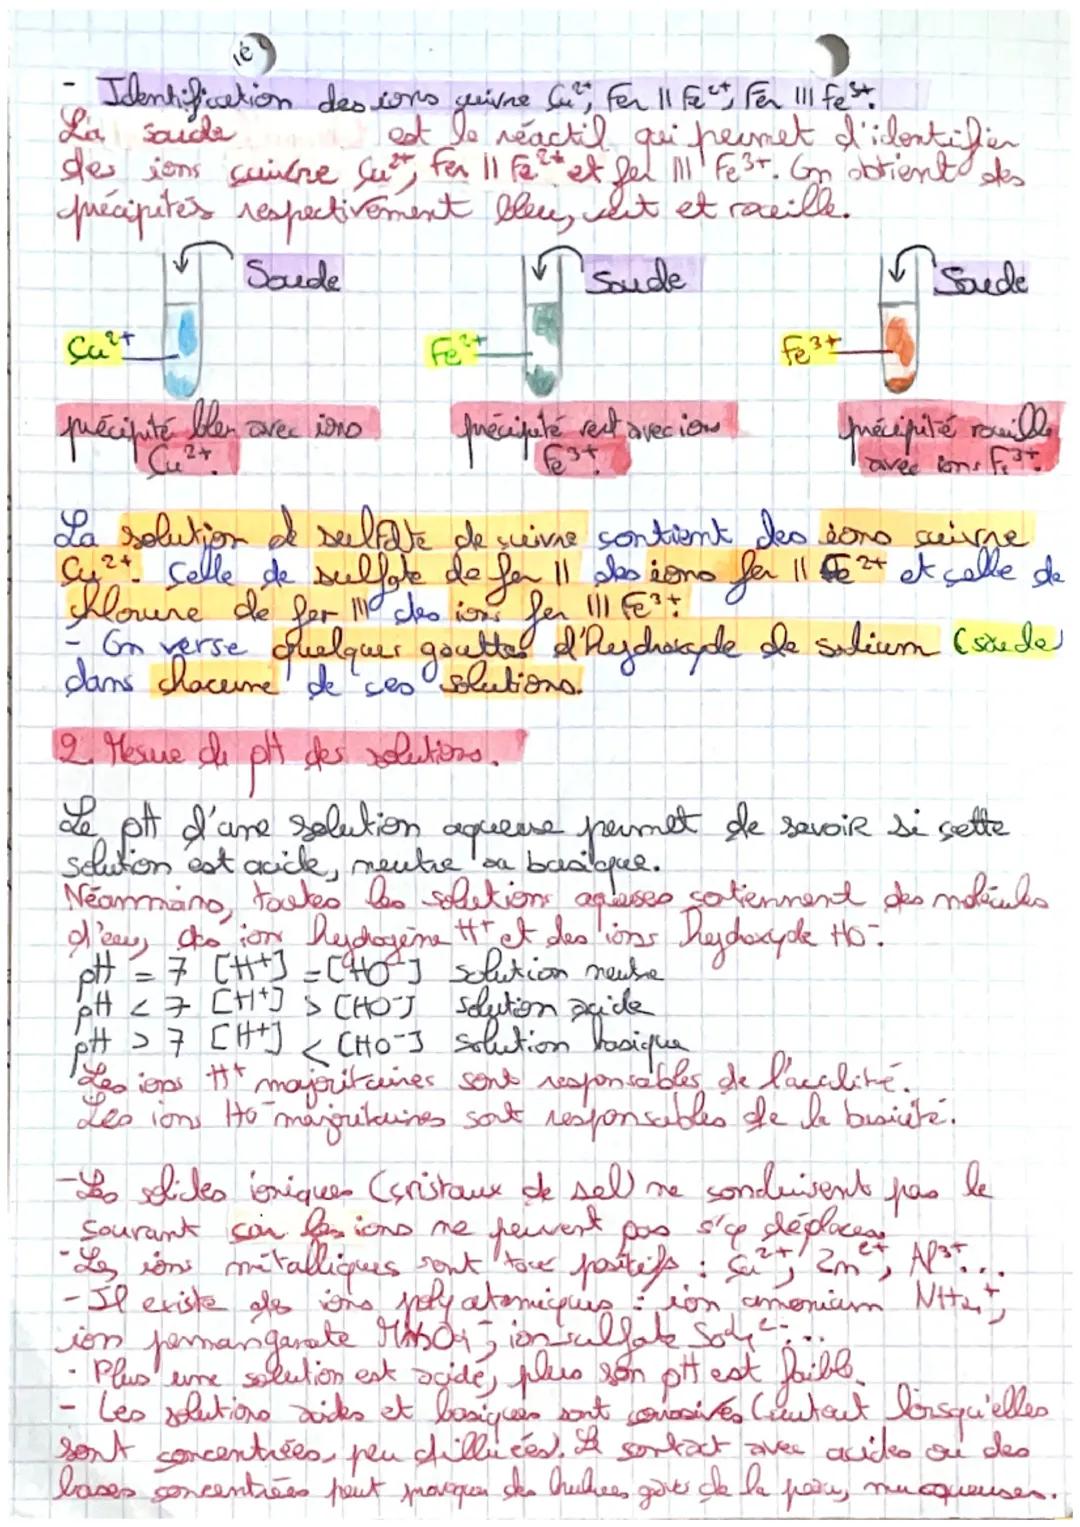 - Identification des ions cuivre Cu²⁺, Fer II Fe²⁺, Fer III Fe³⁺.
La soude est le réactif qui permet d'identifier
des ions cuivre Cu²⁺, Fer II Fe²⁺ et fer III Fe³⁺. On obtient des
précipités respectivement bleu, vert et rouille.
Soude Soude Soude
Cu²⁺ Fe²⁺ Fe³⁺
précipité bleu avec ions précipité vert avec ions précipité rouille
Cu²⁺. Fe³⁺. avec ions Fe³⁺.
La solution de sulfate de cuivre contient des ions cuivre
Cu²⁺. Celle de sulfate de fer II des ions fer II Fe²⁺ et celle de
chlorure de fer III des ions fer III Fe³⁺.
- On verse quelques gouttes d'hydroxyde de sodium (soude)
dans chacune de ces solutions.
2. Mesure du pH des solutions.
Le pH d'une solution aqueuse permet de savoir si cette
solution est acide, neutre ou basique.
Néanmoins, toutes les solutions aqueuses contiennent des molécules
d'eau, des ions hydrogène H⁺ et des ions hydroxyde HO⁻.
pH = 7 [H⁺] = [HO⁻] solution neutre
pH < 7 [H⁺] > [HO⁻] solution acide
pH > 7 [H⁺] < [HO⁻] solution basique
Les ions H⁺ majoritaires sont responsables de l'acidité.
Les ions HO⁻ majoritaires sont responsables de la basicité.
- Les solides ioniques (cristaux de sel) ne conduisent pas le
courant car les ions ne peuvent pas s'y déplacer.
- Les ions métalliques sont tous positifs : Cu²⁺, Zn²⁺, Al³⁺...
- Il existe des ions polyatomiques : ion amonium NH₄⁺,
ion permanganate MnO₄⁻, ion sulfate SO₄²⁻...
- Plus une solution est acide, plus son pH est faible.
- Les solutions acides et basiques sont corrosives (surtout lorsqu'elles
sont concentrées, peu dilluées). Le contact avec acides ou des
bases concentrées peut provoquer des brûlures graves de la peau, muqueuses.